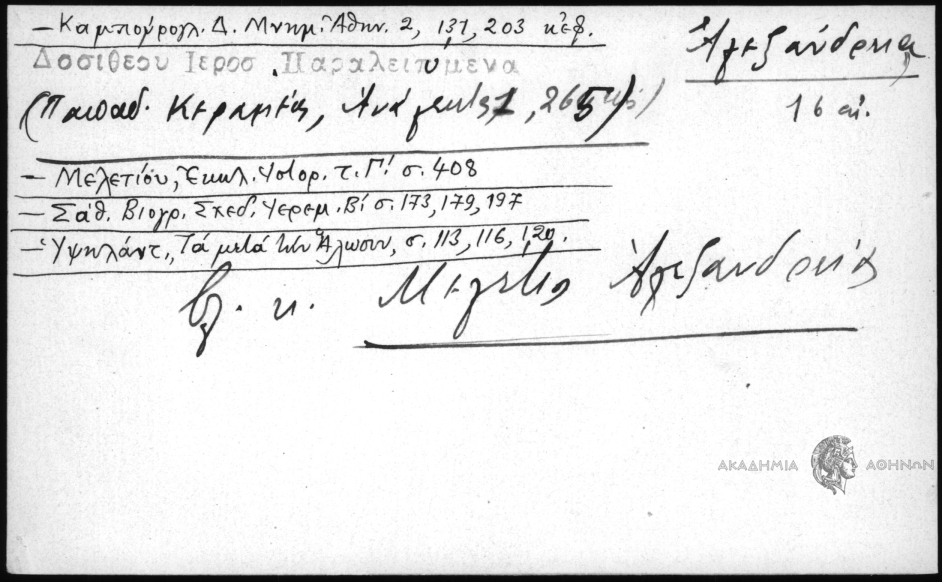 — Καμπούρογλ. Δ. Μνημ. Ἀθην. 2, 137, 203 κἑφ.
Ἀλεξάνδρεια
Δοσιθέου Ιεροσ. Παραλειπομενα
16 αἰ.
(Παπαδ. Κεραμέως, Ἀνάλεκτα 1, 265)
— Μελετίου, Ἐκκλ. Ἱστορ. τ. Γ! σ. 408
— Σάθ. Βιογρ. Σχεδ. Ἱερεμ. Β! σ. 173, 179, 197
— Ὑψηλάντ., Τά μετά τήν Ἅλωσιν, σ. 113, 116, 120.
βλ. κ. Μελέτιο Ἀλεξανδρείας
ΑΚΑΔΗΜΙΑ ΑΘΗΝΩΝ